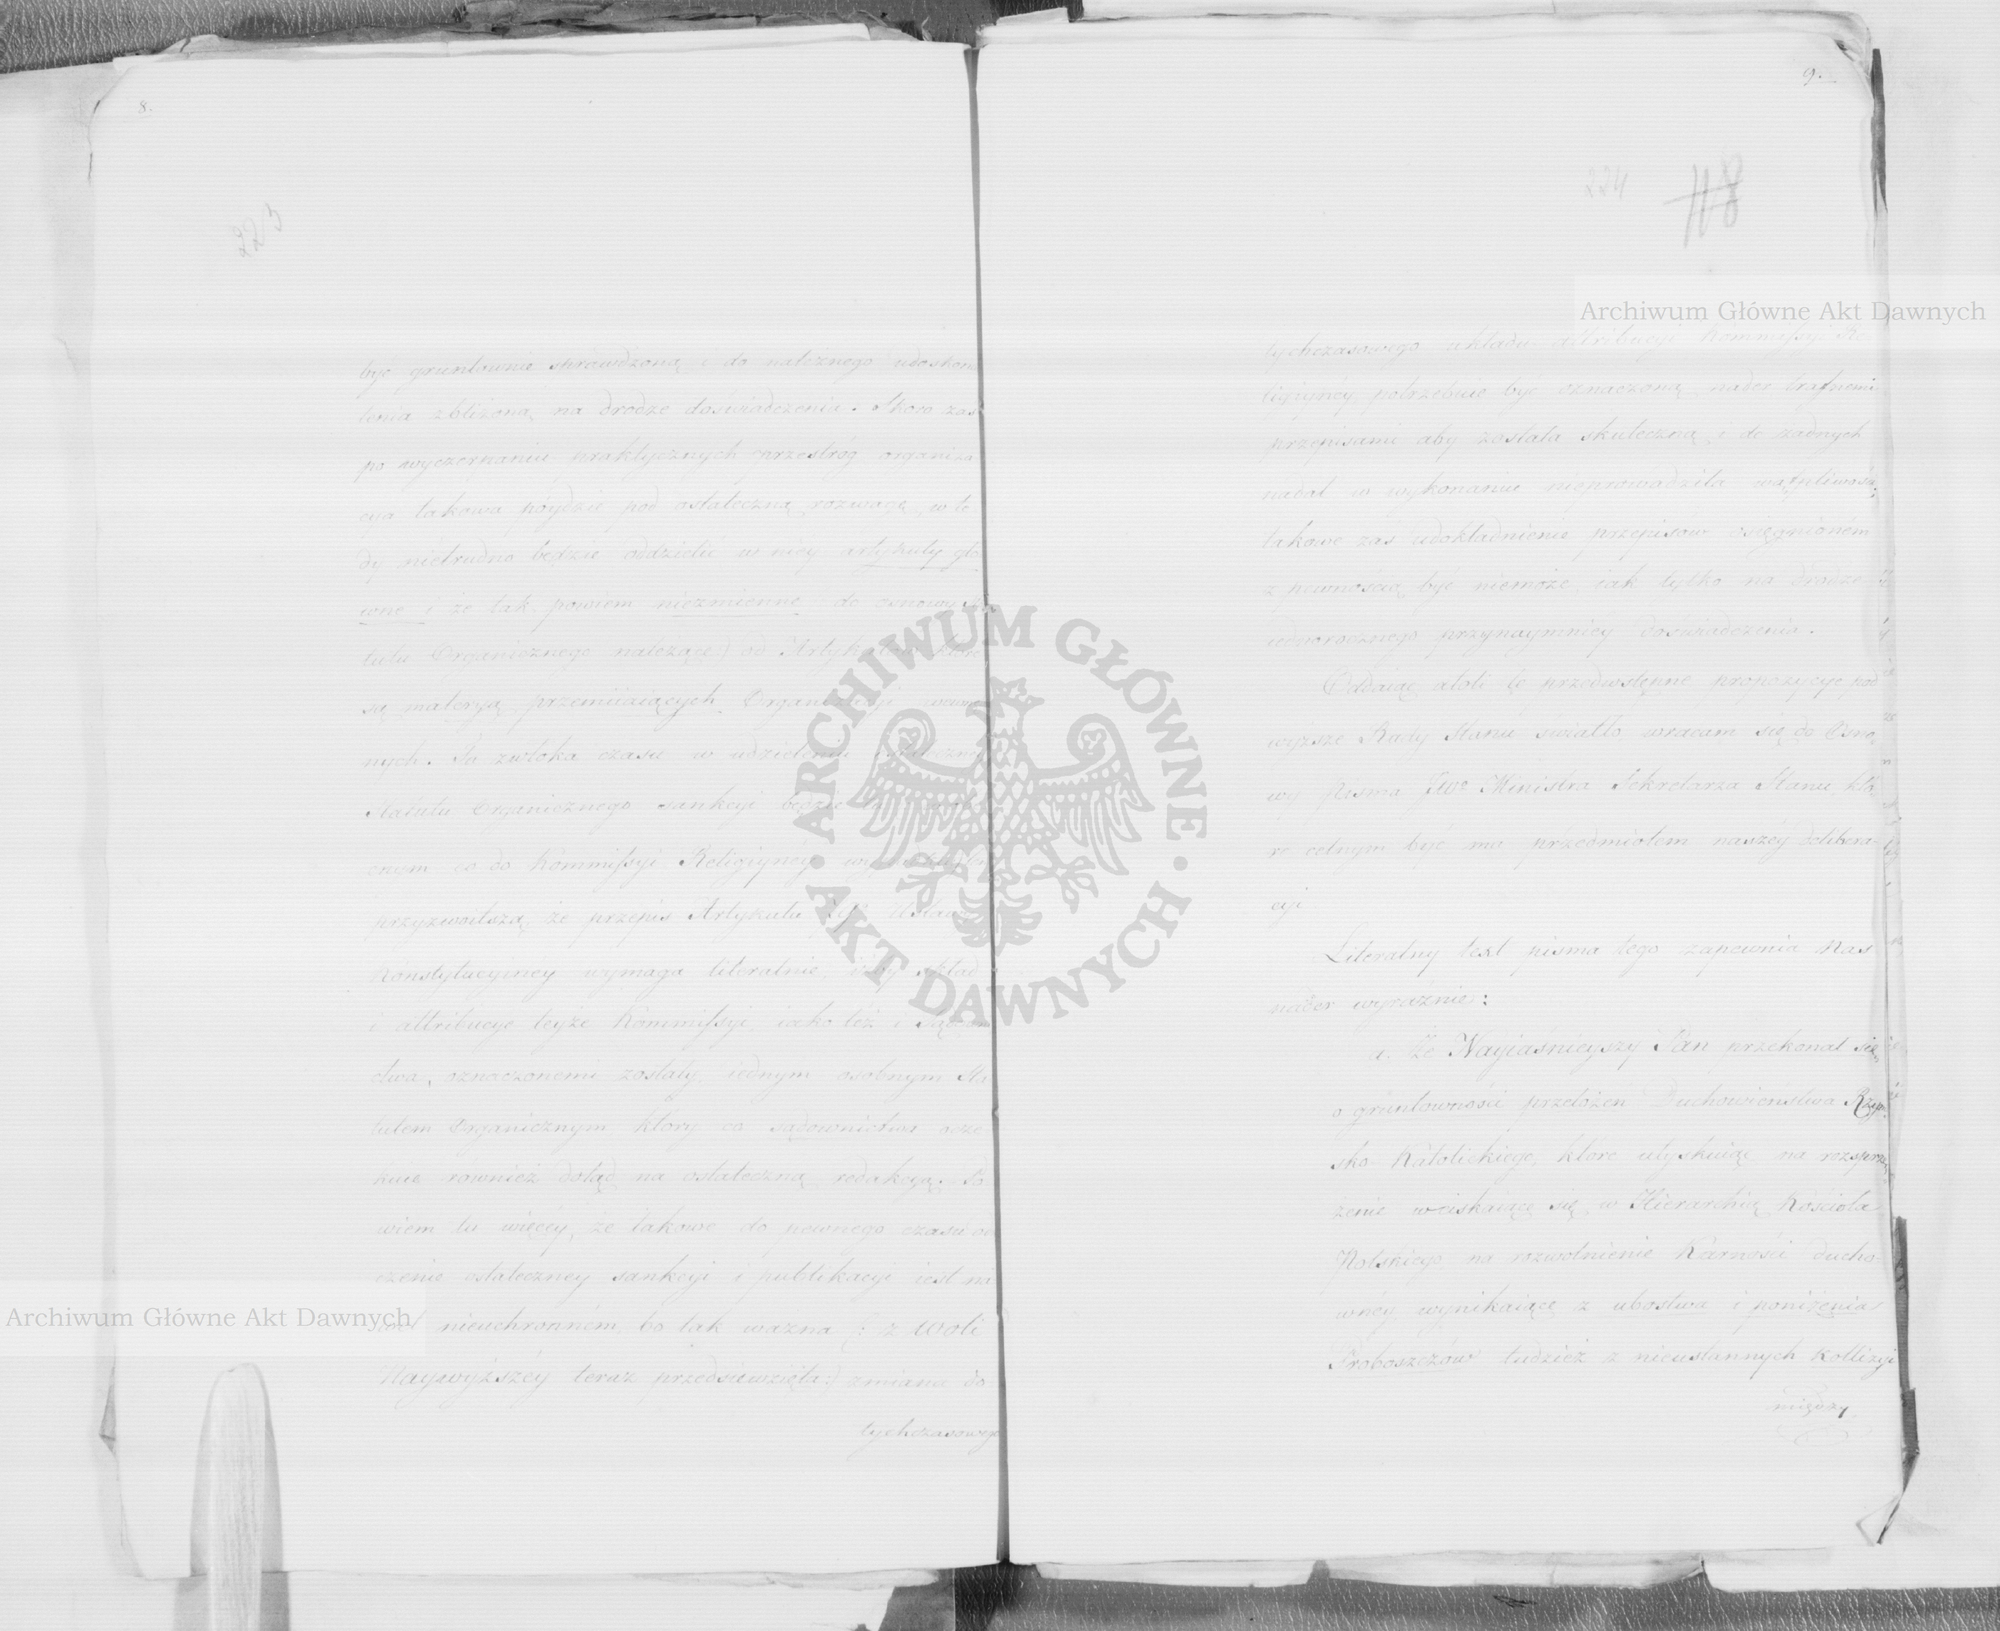 8.
223
być gruntownie sprawdzoną i do należnego udoskona
lenia zbliżoną na drodze doświadczenia. Skoro zaś
po wyczerpaniu praktycznych przestróg organiza
cya takowa póydzie pod ostateczną rozwagę, w te
dy nietrudno będzie oddzielić w niey artykuły głó
wne i że tak powiem niezmienne do osnowy Sta
tutu Organicznego należące:) od Artykułów które
są materyą przemiiaiących Organizacyi
nych. Ta zwłoka czasu w udzieleniu
Statutu Organicznego sankcyi będzie
co do Kommissyi Religiyney
przyzwoitszą, że przepis Artykułu Ustawy
Konstytucyiney wymaga literalnie, iżby skład
i attribucye teyże Kommissyi, iako też i Sądowni
ctwa, oznaczonemi zostały iednym osobnym Sta
tutem Organicznym który co sądownictwa ocze
kuie również dotąd na ostateczną redakcyą. Po
wiem tu więcey, że takowe do pewnego czasu od
czenie ostateczney sankcyi i publikacyi iest na
wet nieuchronném bo tak ważna (: z woli
Naywyższéy teraz przedsięwzięta:) zmiana do
tychczasowego
9.
224
118
tychczasowego układu attribucyi Kommissyi Re
ligiyney potrzebuie być oznaczoną nader trafnemi
przepisami aby została skuteczną i do żadnych
nadal w wykonaniu nieprowadziła wątpliwości;
takowe zaś udokładnienie przepisów osięgnioném
z pewnością być niemoże, iak tylko na drodze
iednorocznego przynaymniey doświadczenia.
Oddaiąc atoli tę przedwstępne propozycye pod
wyższe Rady Stanu światło wracam się do Osno
wy Pisma JWo Ministra Sekretarza Stanu, któ
re celnym być ma przedmiotem naszéy delibera
cyi
Literalny text pisma tego zapewnia nas
nader wyraźnie:
a. Że Nayiaśnieyszy Pan przekonał się
o gruntowności przełożeń Duchowieństwa Rzym
sko Katolickiego, które utyskuiąc na rozprzę
żenie wciskaiące się w Hierarchią Kościoła
Polskiego na rozwolnienie Karności ducho
wney wynikaiące z ubóstwa i poniżenia
Proboszczów tudzież z nieustannych kollizyi
między
Archiwum Główne Akt Dawnych
Archiwum Główne Akt Dawnych
ARCHIWUM GŁÓWNE · AKT DAWNYCH ·